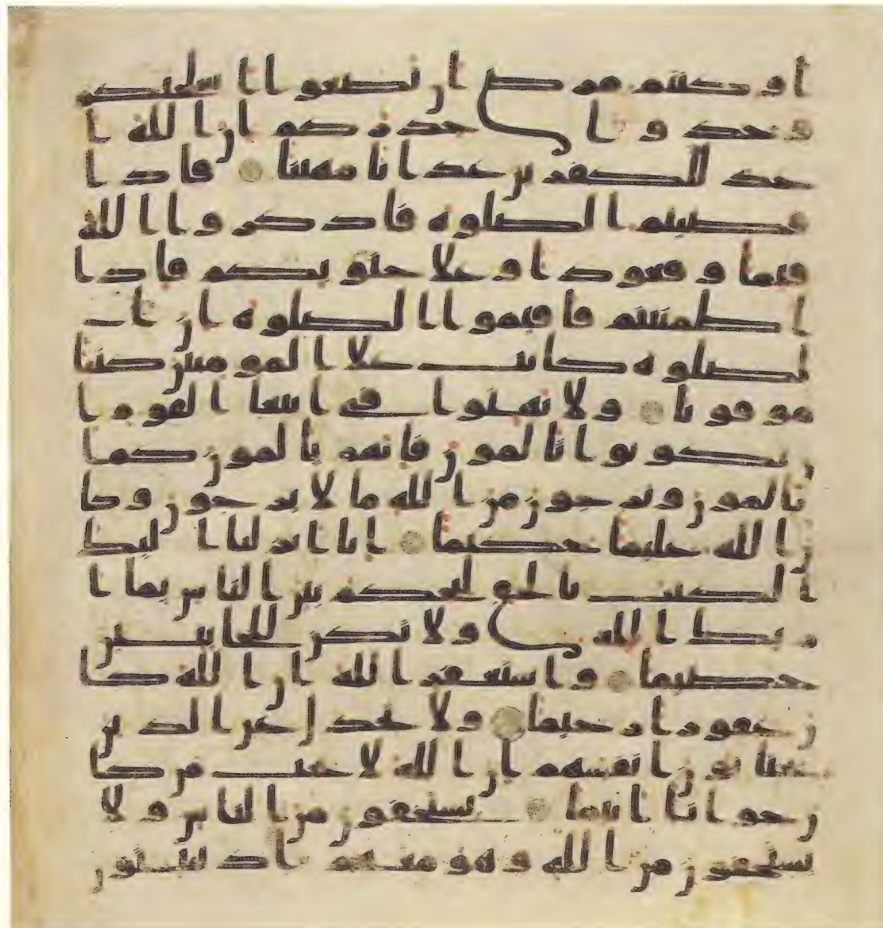 او كنتم مرضى ان تضعوا اسلحتكم
وخذوا حذركم ان الله ا
عد للكفرين عذابا مهينا فاذا
قضيتم الصلوه فاذكروا الله
قيما وقعودا وعلى جنوبكم فاذا
اطمننتم فاقيموا الصلوه ان ا
لصلوه كانت على المومنين كتبا
موقوتا ولا تهنوا في ابتغا القوم ا
ن تكونوا تالمون فانهم يالمون كما
تالمون وترجون من الله ما لا يرجون وكا
ن الله عليما حكيما انا انزلنا اليك
الكتب بالحق لتحكم بين الناس بما ا
ريك الله ولا تكن للخاينين
خصيما واستغفر الله ان الله كا
ن غفورا رحيما ولا تجدل عن الذين
يختانون انفسهم ان الله لا يحب من كا
ن خوانا اثيما يستخفون من الناس ولا
يستخفون من الله وهو معهم اذ يبيتون